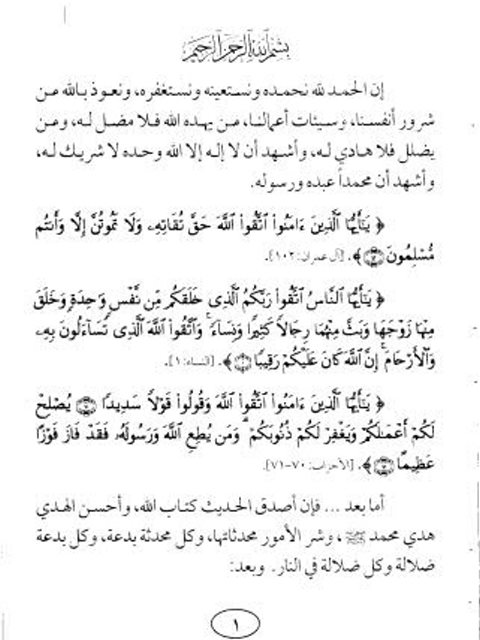 بسم الله الرحمن الرحيم
إن الحمد لله نحمده ونستعينه ونستغفره، ونعوذ بالله من
شرور أنفسنا، وسيئات أعمالنا، من يهده الله فلا مضل له، ومن
يضلل فلا هادي له، وأشهد أن لا إله إلا الله وحده لا شريك له،
وأشهد أن محمداً عبده ورسوله.
﴿ يَٰٓأَيُّهَا ٱلَّذِينَ ءَامَنُوا۟ ٱتَّقُوا۟ ٱللَّهَ حَقَّ تُقَاتِهِۦ وَلَا تَمُوتُنَّ إِلَّا وَأَنتُم
مُّسْلِمُونَ ﴾. [آل عمران: ١٠٢].
﴿ يَٰٓأَيُّهَا ٱلنَّاسُ ٱتَّقُوا۟ رَبَّكُمُ ٱلَّذِى خَلَقَكُم مِّن نَّفْسٍ وَٰحِدَةٍ وَخَلَقَ
مِنْهَا زَوْجَهَا وَبَثَّ مِنْهُمَا رِجَالًا كَثِيرًا وَنِسَآءً ۚ وَٱتَّقُوا۟ ٱللَّهَ ٱلَّذِى تَسَآءَلُونَ بِهِۦ
وَٱلْأَرْحَامَ ۚ إِنَّ ٱللَّهَ كَانَ عَلَيْكُمْ رَقِيبًا ﴾. [النساء: ١].
﴿ يَٰٓأَيُّهَا ٱلَّذِينَ ءَامَنُوا۟ ٱتَّقُوا۟ ٱللَّهَ وَقُولُوا۟ قَوْلًا سَدِيدًا ۝ يُصْلِحْ
لَكُمْ أَعْمَٰلَكُمْ وَيَغْفِرْ لَكُمْ ذُنُوبَكُمْ ۗ وَمَن يُطِعِ ٱللَّهَ وَرَسُولَهُۥ فَقَدْ فَازَ فَوْزًا
عَظِيمًا ﴾. [الأحزاب: ٧٠-٧١].
أما بعد ... فإن أصدق الحديث كتاب الله، وأحسن الهدي
هدي محمد ﷺ، وشر الأمور محدثاتها، وكل محدثة بدعة، وكل بدعة
ضلالة وكل ضلالة في النار. وبعد:
١